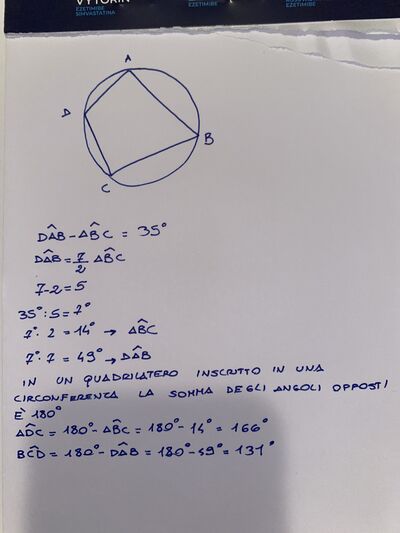 VYTORIN
EZETIMIBE
SIMVASTATINA
EZETIMIBE
A
D
B
C
DÂB - AB̂C = 35°
DÂB = 7/2 AB̂C
7-2 = 5
35° : 5 = 7°
7° · 2 = 14° → AB̂C
7° · 7 = 49° → DÂB
IN UN QUADRILATERO INSCRITTO IN UNA
CIRCONFERENZA LA SOMMA DEGLI ANGOLI OPPOSTI
È 180°
AD̂C = 180° - AB̂C = 180° - 14° = 166°
BĈD = 180° - DÂB = 180° - 49° = 131°